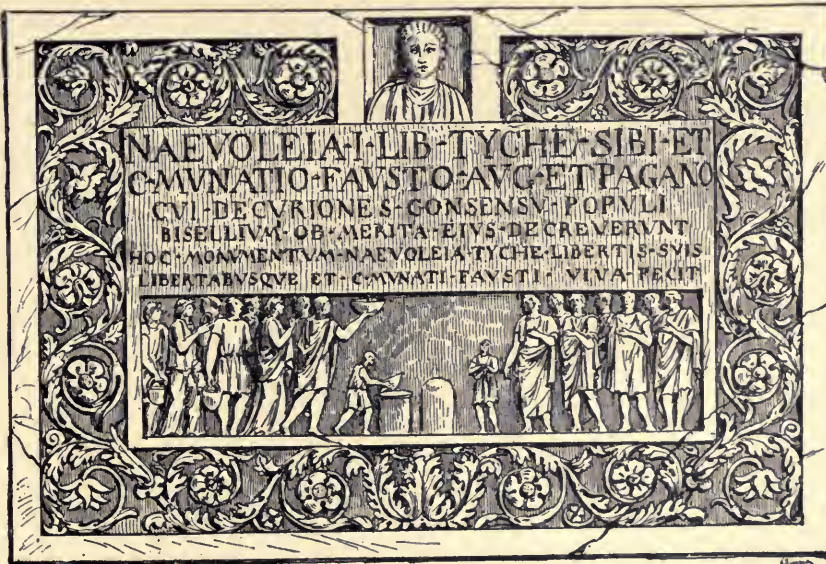 NAEVOLEIA·I·LIB·TYCHE·SIBI·ET
C·MVNATIO·FAVSTO·AVG·ET PAGANO
CVI·DECVRIONES·CONSENSV·POPVLI
BISELLIVM·OB·MERITA·EIVS·DECREVERVNT
HOC·MONVMENTVM·NAEVOLEIA·TYCHE·LIBERTIS·SVIS
LIBERTABVSQVE ET·C·MVNATI·FAVSTI·VIVA·FECIT